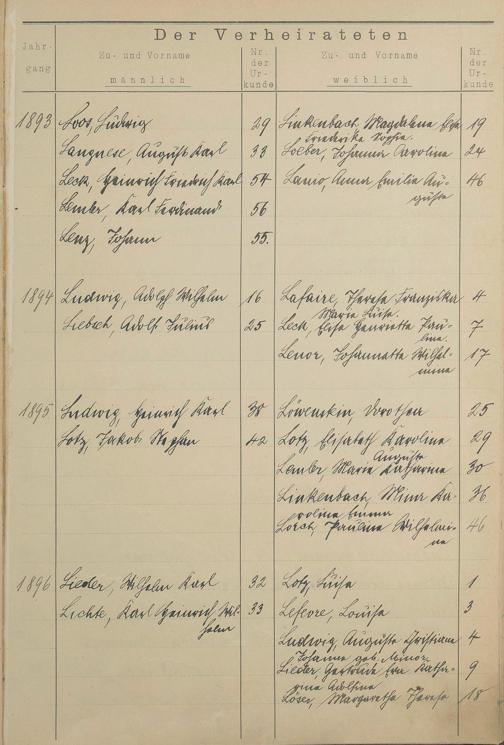 Der Verheirateten
Jahr-
gang
Zu- und Vorname
männlich
Nr.
der
Ur-
kunde
Zu- und Vorname
weiblich
Nr.
der
Ur-
kunde
1893 Loos, Ludwig 29 Linkenbach, Magdalena Elise 19
Friederike Sophie
Langnese, August Karl 33 Loeber, Johanna Karolina 24
Leck, Heinrich Friedrich Karl 54 Lanio, Anna Emilie Au- 46
guste
Karl Ferdinand 56
Lenz, Johann 55.
1894 Ludwig, Adolph Wilhelm 16 Lafaire, Therese Franziska 4
Maria Luise.
Liebich, Adolf Julius 25 Leck, Elise Henriette Pau- 7
line
Johannatte Wilhel- 17
mine
1895 Ludwig, Heinrich Karl 38 Löwenstein, Dorothea 25
Lotz, Jakob Stephan 42 Lotz, Elisabeth Karoline 29
Auguste
Maria Katharina 30
Linkenbach, Mina Ka- 36
roline Emma
Lorch, Pauline Wilhelmi- 46
ne
1896 Lieder, Wilhelm Karl 32 Lotz, Luise 1
Lichte, Karl Heinrich Wil- 33 Lefevre, Louise 3
helm
Ludwig, Auguste Christiane 4
Johanna geb. Minor
Lieder, Gertrude Eva Katha- 9
rina Adolfine
Löser, Margaretha Therese 18